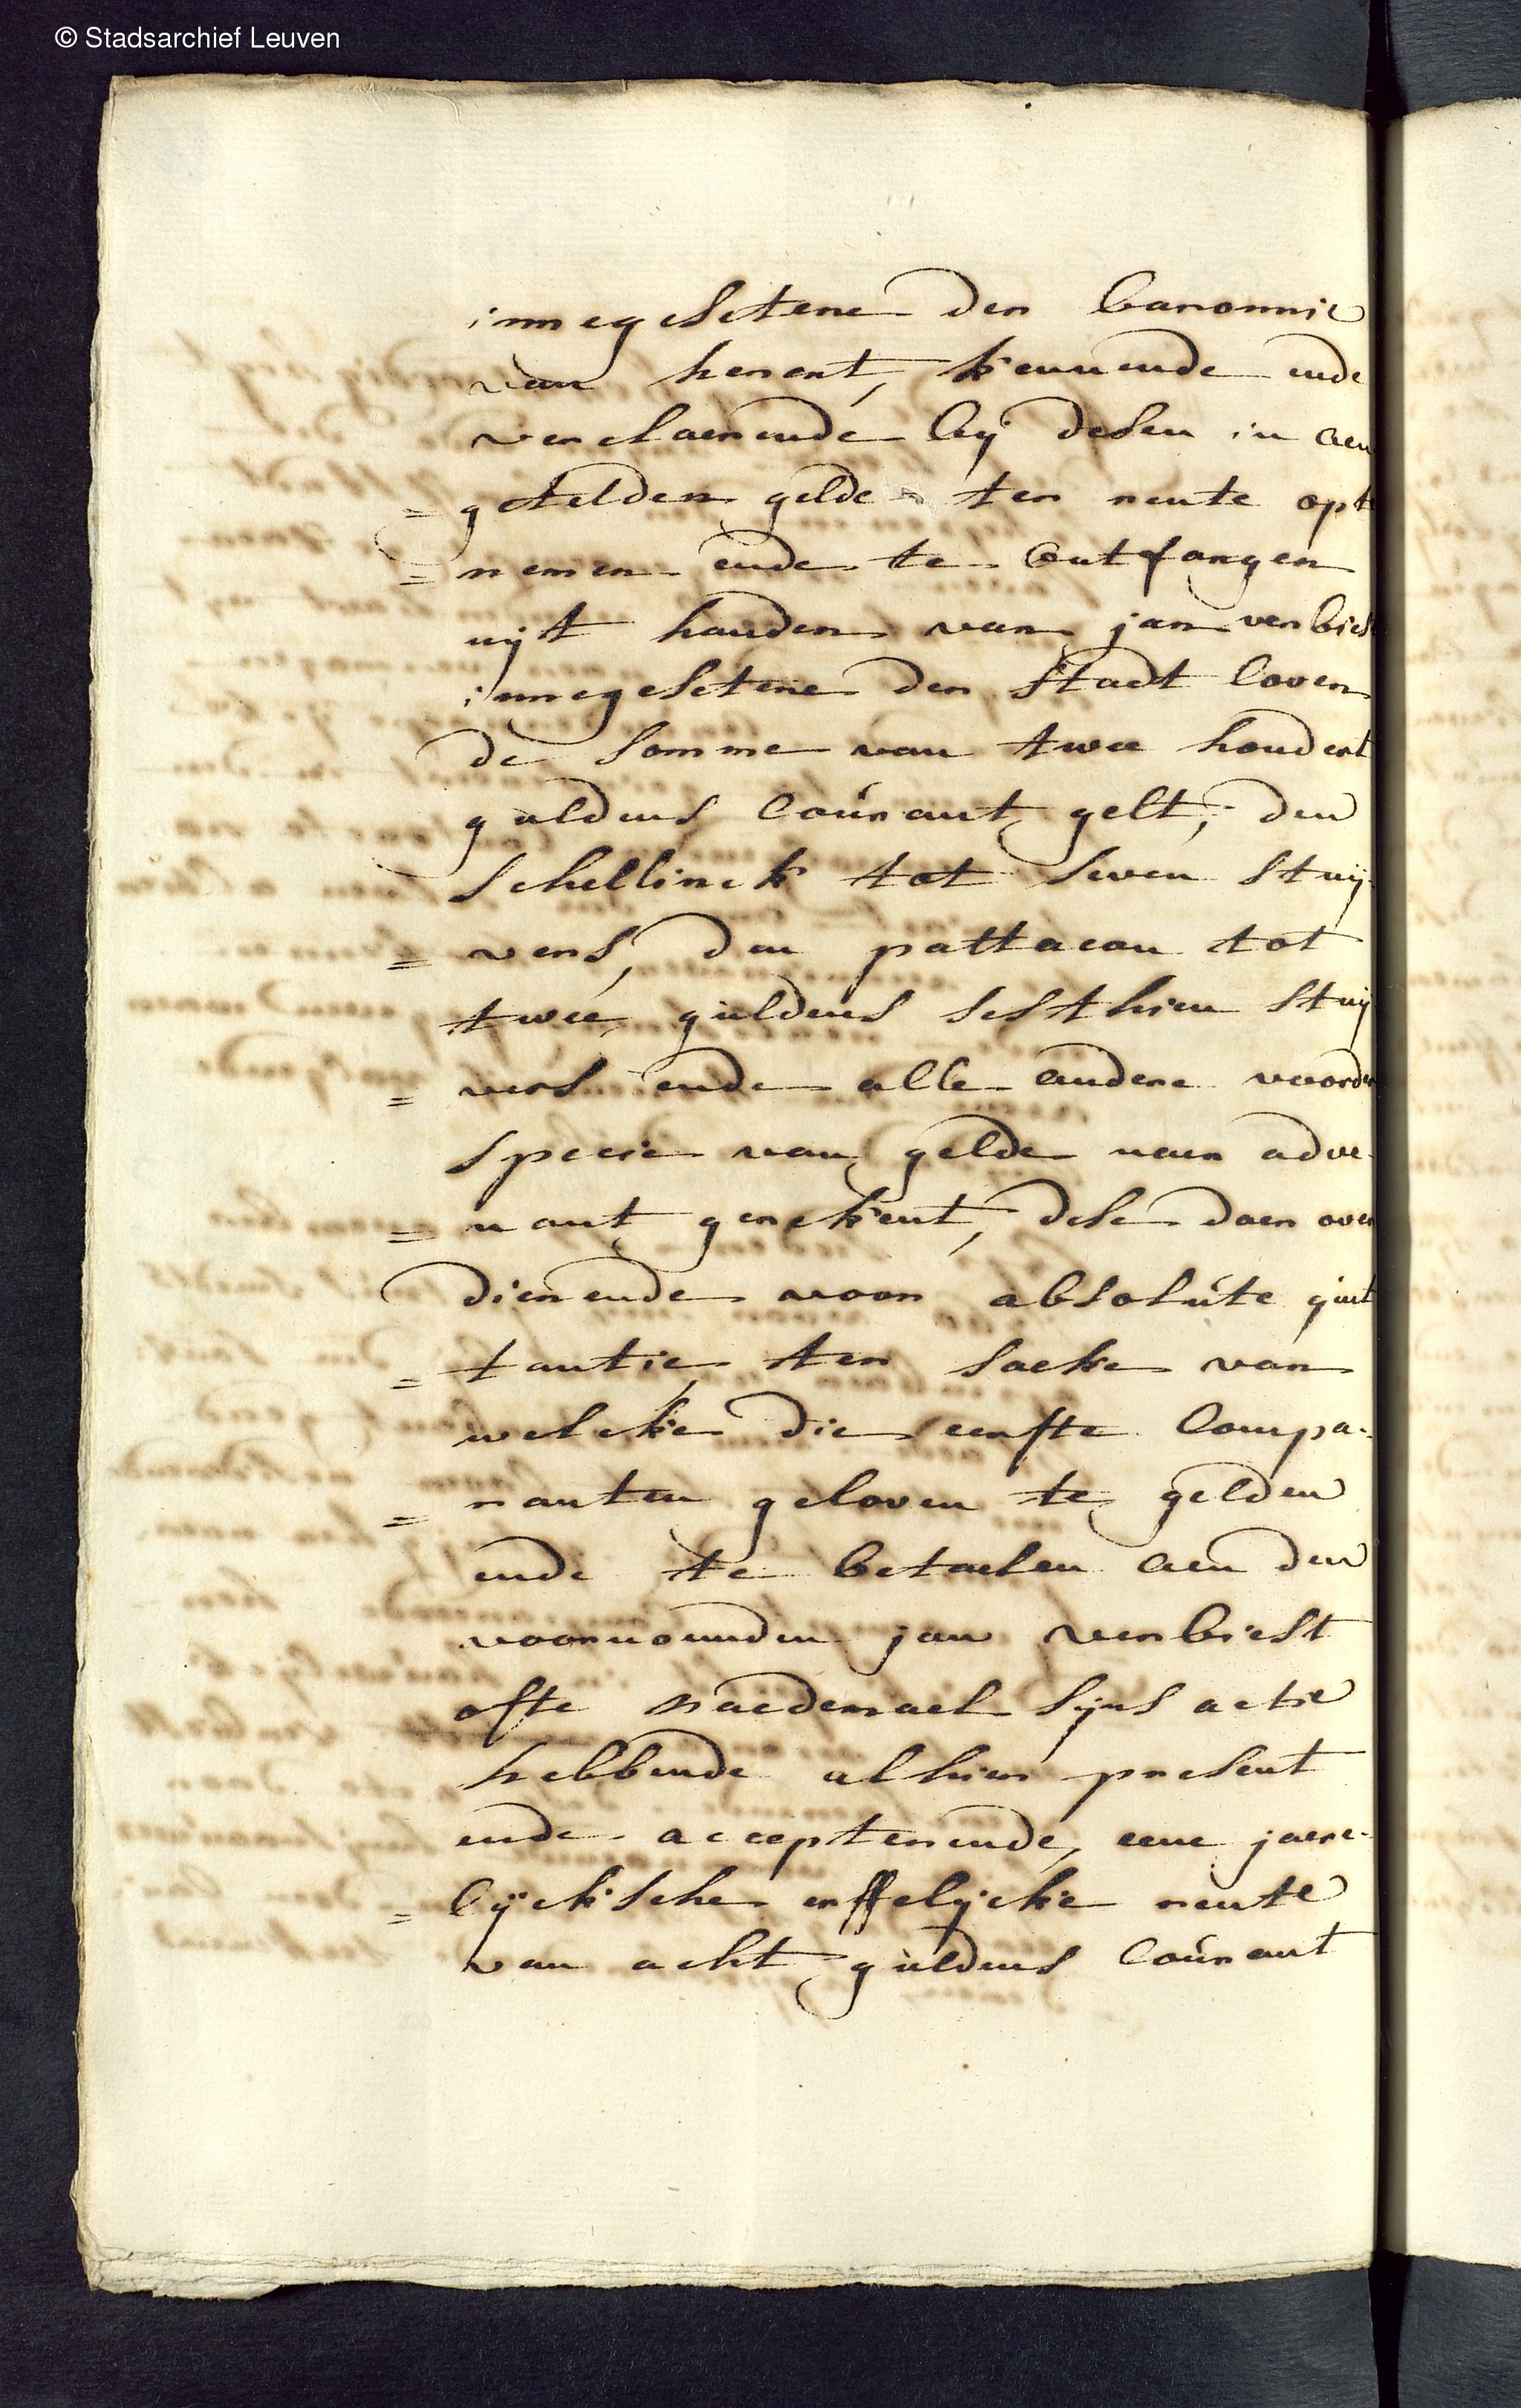 © Stadsarchief Leuven
innegesetene der baronnie
van herent, kennende ende
verclaerende bij desen in aen
= getelden gelde ter rente opte
= nemen ende te ontfangen
uijt handen van jan verbiest
innegesetene der stadt loven
de somme van twee hondert
guldens courant gelt, den
schellinck tot seven stuij
= vers, den pattacon tot
twee guldens sesthien stuij
= vers ende alle andere voorder
specie van gelde naer adve
= nant gerekent, dese daer over
dienende voor absolute quit
= tantie, ter saeke van
welcke die eerste compa
= ranten geloven te gelden
ende te betaelen aen den
voornoemden jan verbiest
ofte naedermael sijns actie
hebbende alhier present
ende accepterende, eene jaere
= lijcksche erffelijcke rente
van acht guldens courant